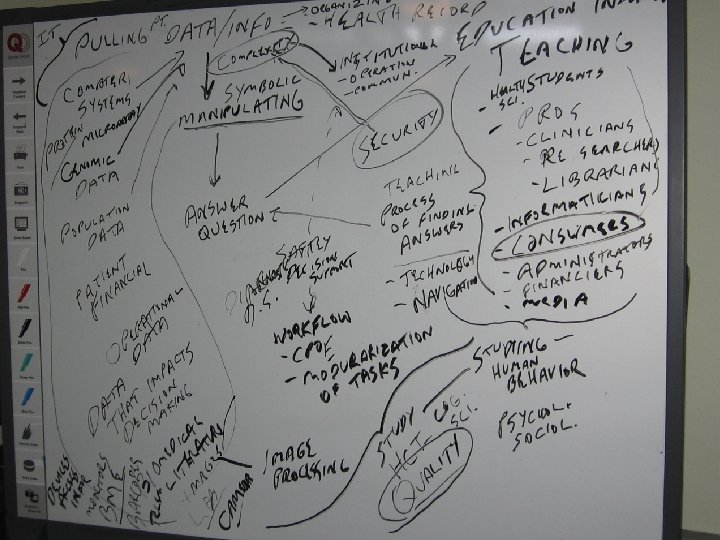 IT
PULLING PT DATA/INFO
ORGANIZING
- HEALTH RECORD
EDUCATION
TEACHING
COMPLEXITY
INSTITUTIONAL
- OPERATION
- COMMUN.
SYMBOLIC
MANIPULATING
SECURITY
COMPUTER
SYSTEMS
PROTEIN MICROARRAY
GENOMIC
DATA
POPULATION
DATA
PATIENT
FINANCIAL
OPERATIONAL
DATA
DATA
THAT IMPACTS
DECISION
MAKING
ANSWER
QUESTION
SAFETY
DECISION
SUPPORT
WORKFLOW
- CPOE
- MODULARIZATION
OF TASKS
TEACHING
PROCESS
OF FINDING
ANSWERS
- TECHNOLOGY
- NAVIGATION
- HEALTH STUDENTS
SCI.
- PROS
- CLINICIANS
- RESEARCHERS
- LIBRARIANS
- INFORMATICIANS
- CONSUMERS
- ADMINISTRATORS
- FINANCIERS
- MEDIA
STUDYING
HUMAN
BEHAVIOR
PSYCHOL.
SOCIOL.
STUDY
HCI
COG.
SCI.
QUALITY
IMAGE
PROCESSING
BIOMEDICAL
LITERATURE
IMAGES
LAB
CAMERA
DEVICES
MONITORS
BME
BARCODES